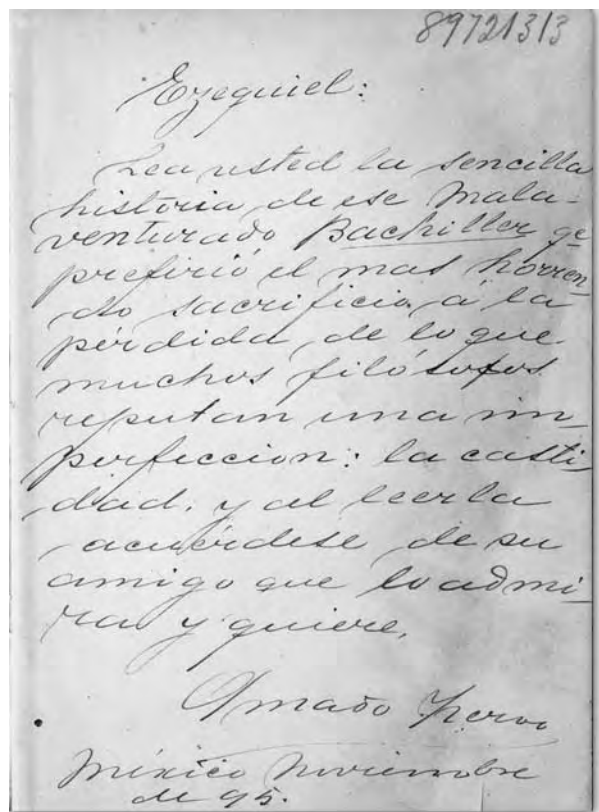 89721313
Ezequiel:
Lea usted la sencilla
historia de ese mala-
venturado Bachiller qe
prefirió el mas horren-
do sacrificio á la
pérdida, de lo que
muchos filósofos
reputan una im-
perfeccion: la casti-
dad. y al leerla
acuérdese de su
amigo que lo admi-
ra y quiere.
Amado Nervo
México Noviembre
de 95.